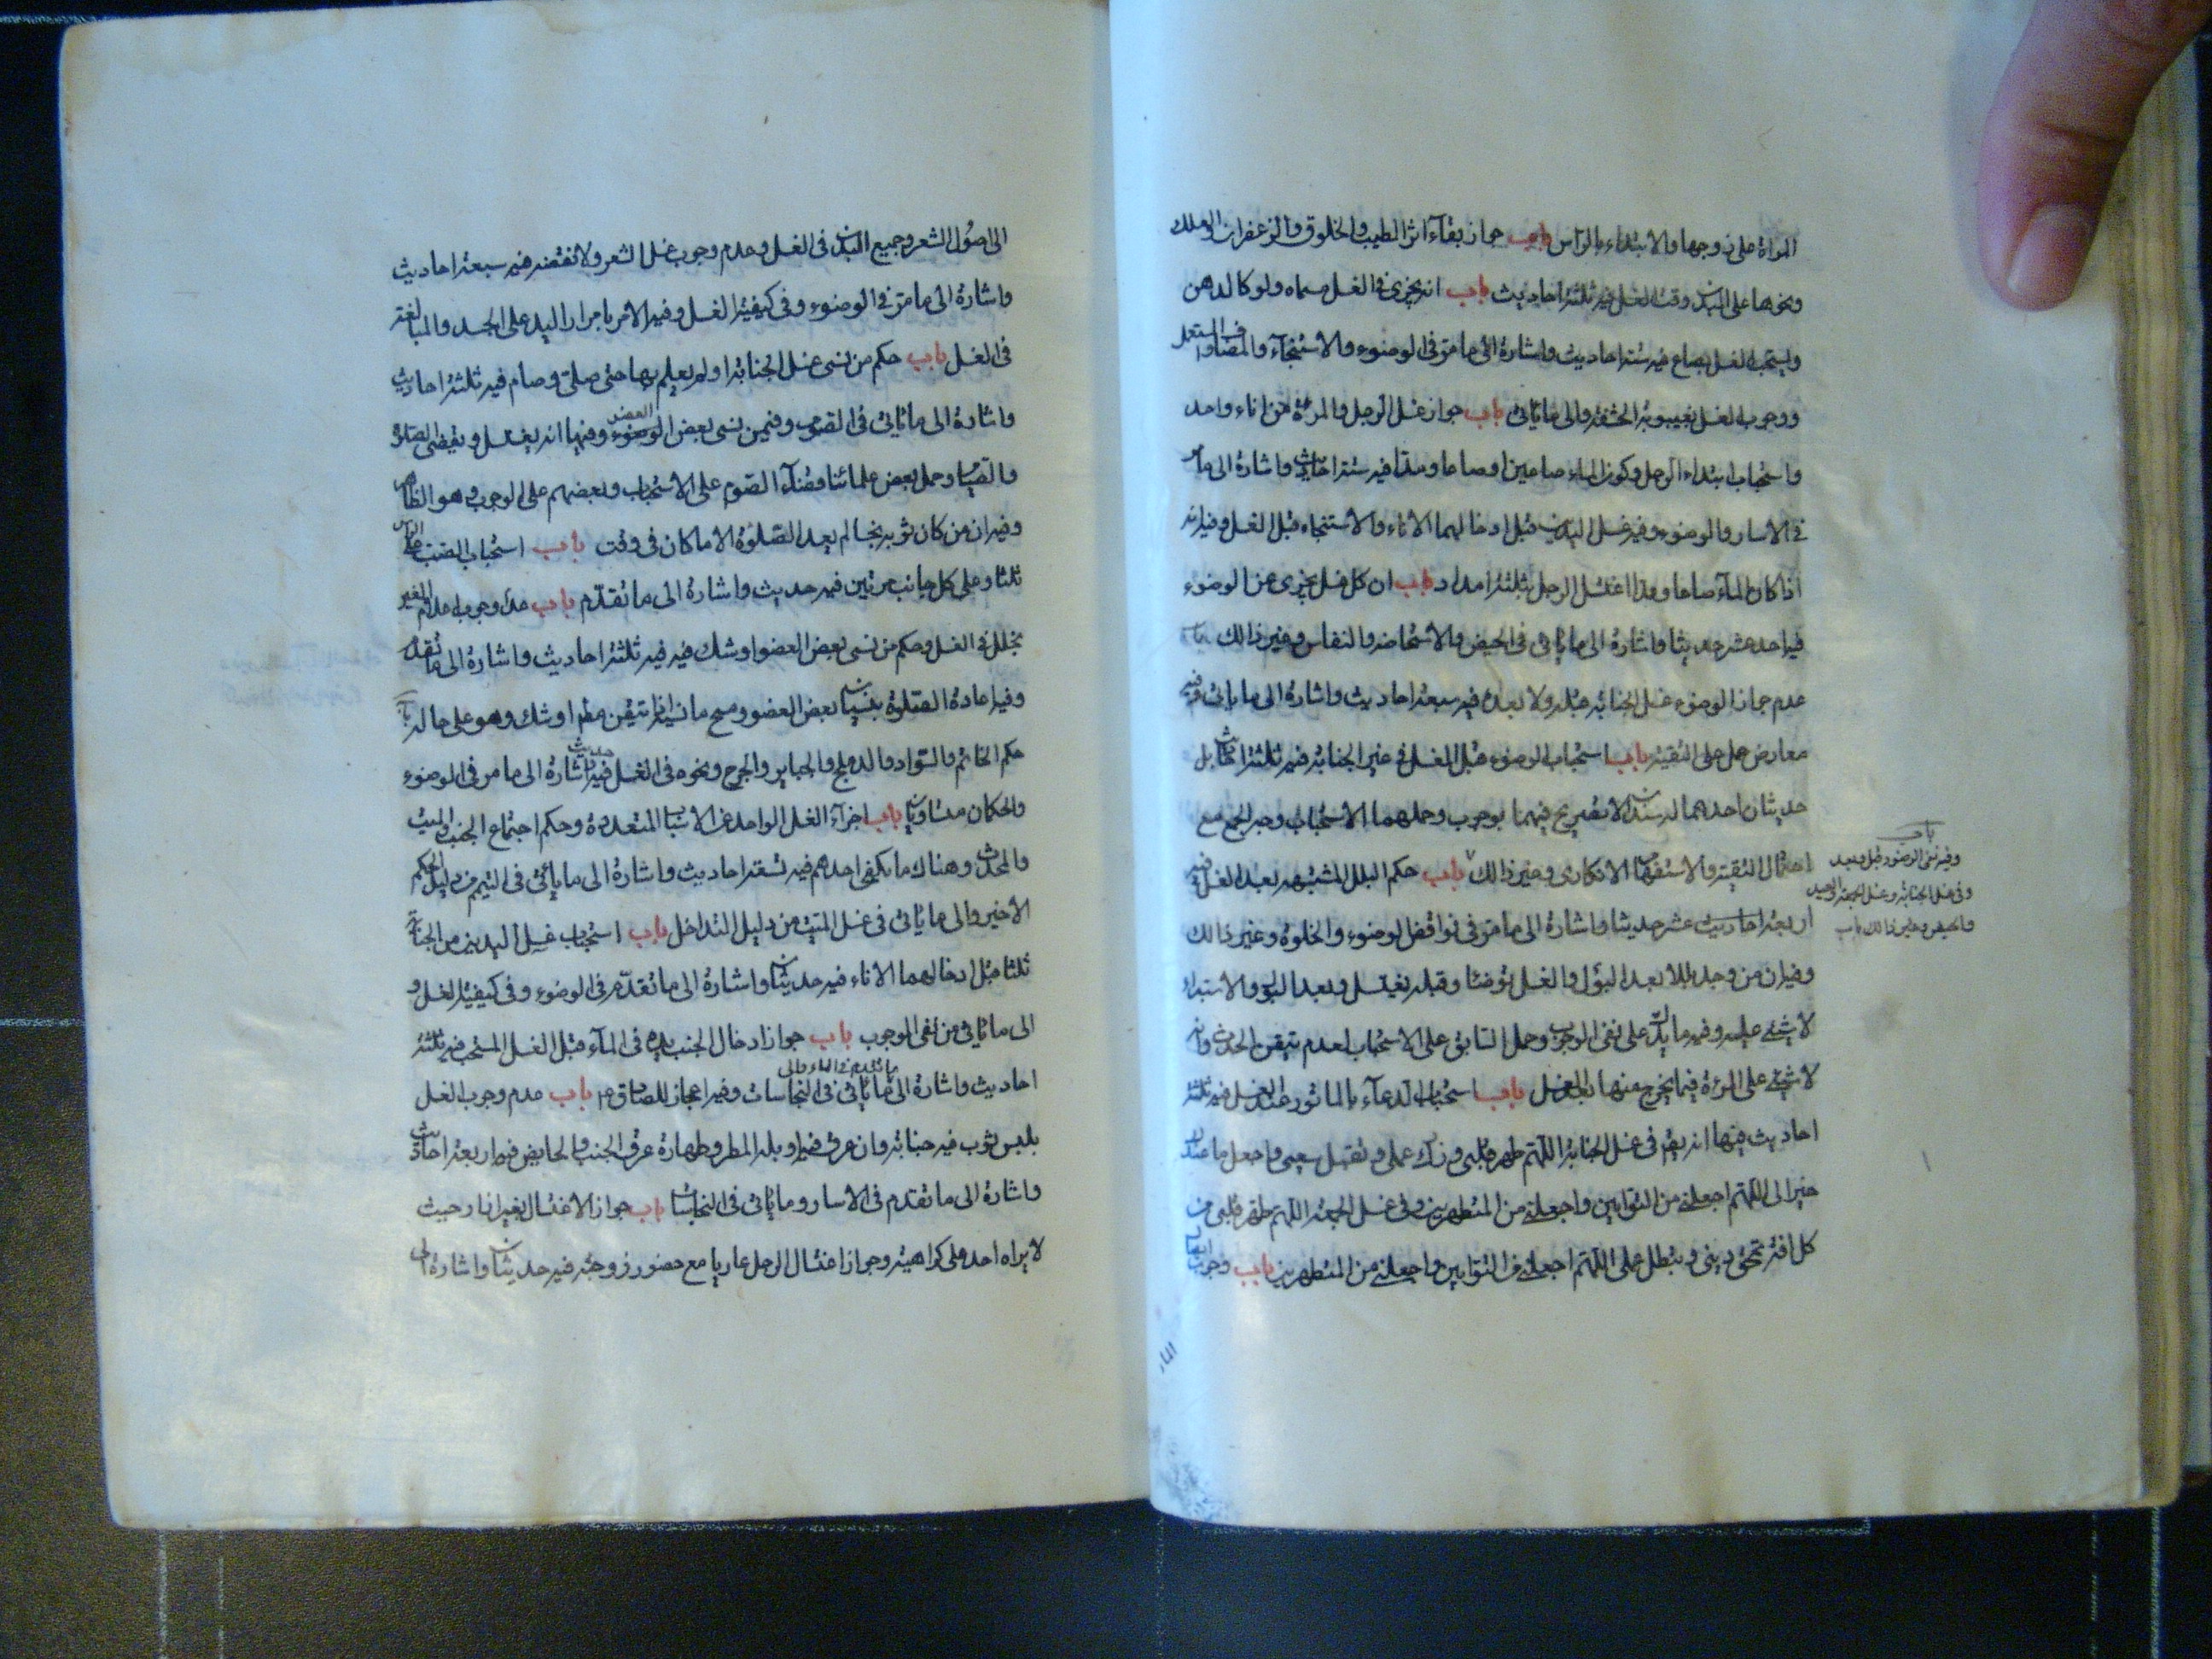 المراة على زوجها والابتداء بالراس باب جواز بقآء اثر الطيب والخلوق والزعفران والعلك
ونحوها على البدن وقت الغسل فيه ثلثة احاديث باب انه يجزى فى الغسل مسماه ولو كالدهن
ويستحب الغسل بصاع فيه ستة احاديث واشارة الى ما مرّ فى الوضوء والاستنجآء والمضاف والمستعمل
ووجوب الغسل بغيبوبة الحشفة والى ما ياتى باب جواز غسل الرجل والمرءة من اناء واحد
واستحباب ابتداء الرجل وكون الماء صاعين او صاعا ومدّا فيه ستة احاديث واشارة الى ما مر
فى الاسار والوضوء وفيه غسل اليدين قبل ادخالهما الاناء والاستنجاء قبل الغسل وفيه انه
اذا كان المآء صاعا ومدا اغتسل الرجل بثلثة امداد باب ان كل غسل يجزى عن الوضوء
فيه احد عشر حديثا واشارة الى ما ياتى فى الحيض والاستحاضه والنفاس وغير ذالك باب
عدم جواز الوضوء مع غسل الجنابة قبله ولا بعده فيه سبعة احاديث واشارة الى ما ياتى وفيه
معارض حمل على التقية باب استحباب الوضوء قبل الغسل فى غير الجنابة فيه ثلثة احاديث بل
حديثان احدهما له سندان لا تصريح فيهما بوجوب وحملهما الاستحباب وجه الجمع مع
احتمال التقية والاستفهام الانكارى وغير ذالك باب حكم البلل المشتبه بعد الغسل فيه
اربعة احاديث عشر حديثا واشارة الى ما مرّ فى نواقض الوضوء والخلوة وغير ذالك
وفيه ان من وجد بللا بعد البول والغسل توضئا وقبله يغتسل وبعد البول والاستبراء
لا شيئ عليه وفيه ما يدلّ على نفى الوجوب وحمل السابق على الاستحباب لعدم تيقن الحدث وانه
لا شيئ على المرءة فيما يخرج منها بعد الغسل باب استحباب الدعآء بالماثور عند الغسل فيه ثلثة
احاديث فيها انه يقم فى غسل الجنابة اللّهم طهر قلبى وزك عملى وتقبل سعيى واجعل ما عندك
خيرا لى اللّهم اجعلنى من التوابين واجعلنى من المتطهرين وفى غسل الجمعة اللّهم طهر قلبى من
كل افة تمحق دينى وتبطل عملى اللّهم اجعلنى من التوابين واجعلنى من المتطهرين باب وجوب ايصال
باب
وفيه نفى الوضوء قبل وبعد
وفى غسل الجنابة وغسل الجمعة والعيد
والحيض وغير ذالك باب
الى اصول الشعر وجميع البدن فى الغسل وعدم وجوب غسل الشعر ولا نقضه فيه سبعة احاديث
واشارة الى ما مرّ فى الوضوء وفى كيفية الغسل وفيه الامر بامرار اليد على الجسد والمبالغة
فى الغسل باب حكم من نسى غسل الجنابة او لم يعلم بها حتى صلى وصام فيه ثلثة احاديث
واشارة الى ما ياتى فى الصوم وفيمن نسى بعض الوضوء العضو وفيها انه يغتسل ويقضى الصلوة
والصيام وحمل بعض علمائنا قضآء الصوم على الاستحباب وبعضهم على الوجوب وهو الظاهر
وفيه ان من كان ثوبه نجسا لم يعد الصلوة الا ما كان فى وقت باب استحباب الصب على الراس
ثلثا وعلى كل جانب مرتين فيه حديث واشارة الى ما تقدّم باب عدم وجوب اعلام الغير
بخلل فى الغسل وحكم من نسى بعض العضو او شك فيه فيه ثلثة احاديث واشارة الى ما تقدم
وفيه اعادة الصلوة بنسيان بعض العضو ومسح ما نسيه ان تيقن وان شك وهو على حاله باب
حكم الخاتم والسوار والدملج والجباير والجرح ونحوه فى الغسل فيه حديث واشارة الى ما مر فى الوضوء
والحكمان متساويان باب اجزآء الغسل الواحد عن الاسباب المتعددة وحكم اجتماع الجنب والميت
والمحدث وهناك ما يكفى احدهم فيه تسعة احاديث واشارة الى ما ياتى فى التيمم من دليل الحكم
الاخير والى ما ياتى فى غسل الميت من دليل التداخل باب استحباب غسل اليدين من الجنابة
ثلثا قبل ادخالهما الاناء فيه حديثان واشارة الى ما تقدّم فى الوضوء وفى كيفية الغسل و
الى ما ياتى من نفى الوجوب باب جواز ادخال الجنب يده فى المآء قبل الغسل المستحب فيه ثلثة
احاديث واشارة الى ما تقدم فى الماء والى ما ياتى فى النجاسات وفيه اعجاز للصادق ع باب عدم وجوب الغسل
بلبس ثوب فيه جنابة وان عرق فيه او بله المطر وطهارة عرق الجنب والحايض فيه اربعة احاديث
واشارة الى ما تقدم فى الاسار وما ياتى فى النجاسات باب جواز الاغتسال بغير ازار حيث
لا يراه احد على كراهية وجواز اغتسال الرجل عاريا مع حضور زوجته فيه حديثان واشارة الى